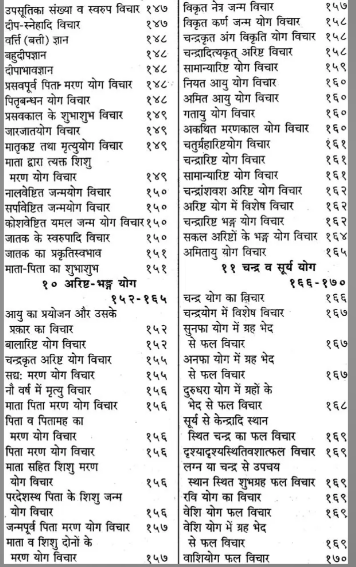 उपसूतिका संख्या व स्वरुप विचार १४७
दीप-स्नेहादि विचार १४७
वर्त्ति (बत्ती) ज्ञान १४८
बहुदीपज्ञान १४८
दीपाभावज्ञान १४८
प्रसवपूर्व पिता मरण योग विचार १४८
पितृबन्धन योग विचार १४८
प्रसवकाल के शुभाशुभ विचार १४९
जारजातयोग विचार १४९
मातृकष्ट तथा मृत्युयोग विचार १४९
माता द्वारा त्यक्त शिशु
मरण योग विचार १४९
नालवेष्टित जन्मयोग विचार १५०
सर्पवेष्टित जन्मयोग विचार १५०
कोशवेष्टित यमल जन्म योग विचार १५०
जातक के स्वरुपादि विचार १५०
जातक का प्रकृतिस्वभाव १५१
माता-पिता का शुभाशुभ १५१
१० अरिष्ट-भङ्ग योग
१५२-१६५
आयु का प्रयोजन और उसके
प्रकार का विचार १५२
बालारिष्ट योग विचार १५२
चन्द्रकृत अरिष्ट योग विचार १५५
सद्य: मरण योग विचार १५५
नौ वर्ष में मृत्यु विचार १५६
माता पिता मरण योग विचार १५६
पिता व पितामह का
मरण योग विचार १५६
पिता मरण योग विचार १५६
माता सहित शिशु मरण
योग विचार १५६
परदेशस्थ पिता के शिशु जन्म
योग विचार १५६
जन्मपूर्व पिता मरण योग विचार १५७
माता व शिशु दोनों के
मरण योग विचार १५७
विकृत नेत्र जन्म विचार १५७
विकृत कर्ण जन्म योग विचार १५८
चन्द्रकृत अंग विकृति योग विचार १५८
चन्द्रादित्यकृत् अरिष्ट विचार १५८
सामान्यारिष्ट योग विचार १५९
नियत आयु योग विचार १६०
अमित आयु योग विचार १६०
गतायु योग विचार १६०
अकथित मरणकाल योग विचार १६०
चतुर्ग्रहारिष्टयोग विचार १६१
चन्द्रारिष्ट योग विचार १६१
सामान्यारिष्ट योग विचार १६१
चन्द्रांशवश अरिष्ट योग विचार १६२
अरिष्ट योग में विशेष विचार १६२
चन्द्रारिष्ट भङ्ग योग विचार १६२
सकल अरिष्टों के भङ्ग योग विचार १६४
अमितायु योग विचार १६५
११ चन्द्र व सूर्य योग
१६६-१७०
चन्द्र योग का विचार १६६
चन्द्रयोग में विशेष विचार १६७
सुनफा योग में ग्रह भेद
से फल विचार १६७
अनफा योग में ग्रह भेद
से फल विचार १६७
दुरुधरा योग में ग्रहों के
भेद से फल विचार १६८
सूर्य से केन्द्रादि स्थान
स्थित चन्द्र का फल विचार १६९
दृश्यादृश्यस्थितिवशात्फल विचार १६९
लग्न या चन्द्र से उपचय
स्थान स्थित शुभग्रह फल विचार १६९
रवि योग का विचार १६९
वेशि योग फल विचार १६९
वेशि योग में ग्रह भेद
से फल विचार १६९
वाशियोग फल विचार १७०